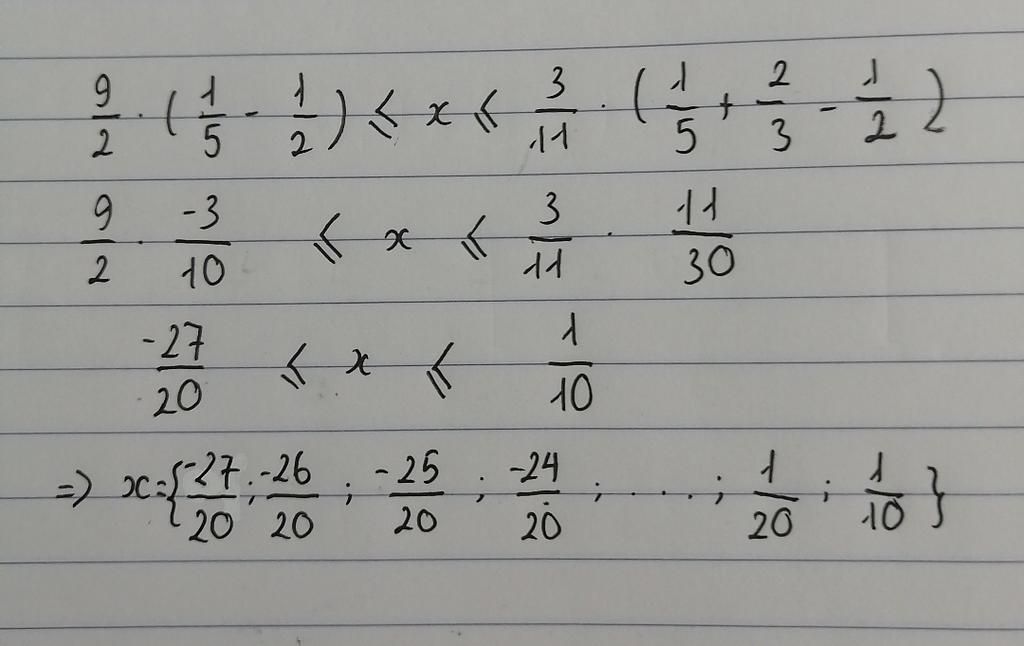 9/2 · (1/5 - 1/2) ⩽ x ⩽ 3/11 · (1/5 + 2/3 - 1/2)
9/2 · -3/10 ⩽ x ⩽ 3/11 · 11/30
-27/20 ⩽ x ⩽ 1/10
=> x={-27/20; -26/20; -25/20; -24/20; ....; 1/20; 1/10}